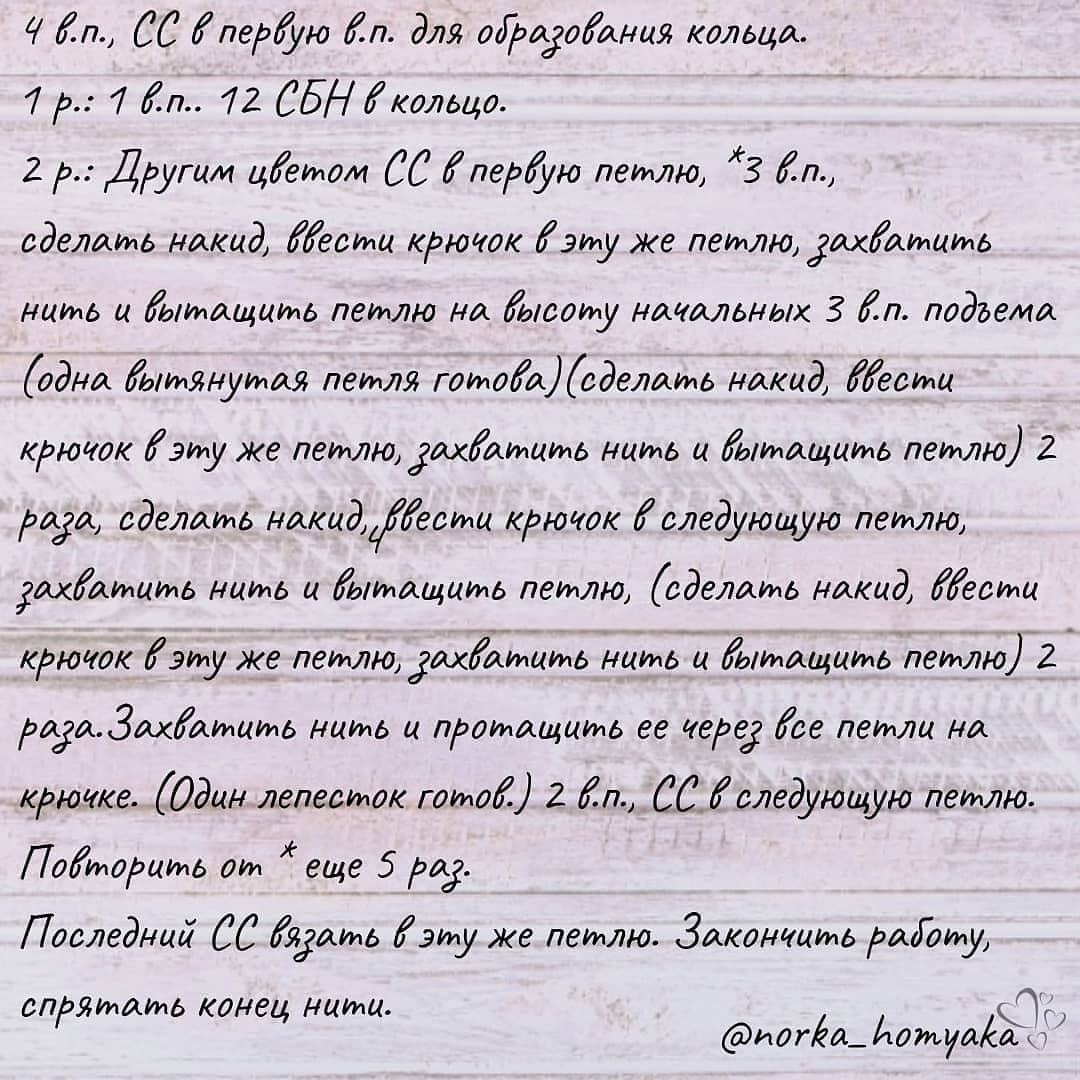 4 в.п., СС в первую в.п. для образования кольца.
1 р.: 1 в.п.. 12 СБН в кольцо.
2 р.: Другим цветом СС в первую петлю, *3 в.п.,
сделать накид, ввести крючок в эту же петлю, захватить
нить и вытащить петлю на высоту начальных 3 в.п. подъема
(одна вытянутая петля готова)(сделать накид, ввести
крючок в эту же петлю, захватить нить и вытащить петлю) 2
раза, сделать накид, ввести крючок в следующую петлю,
захватить нить и вытащить петлю, (сделать накид, ввести
крючок в эту же петлю, захватить нить и вытащить петлю) 2
раза.Захватить нить и протащить ее через все петли на
крючке. (Один лепесток готов.) 2 в.п., СС в следующую петлю.
Повторить от * еще 5 раз.
Последний СС вязать в эту же петлю. Закончить работу,
спрятать конец нити.
@norka_homyaka